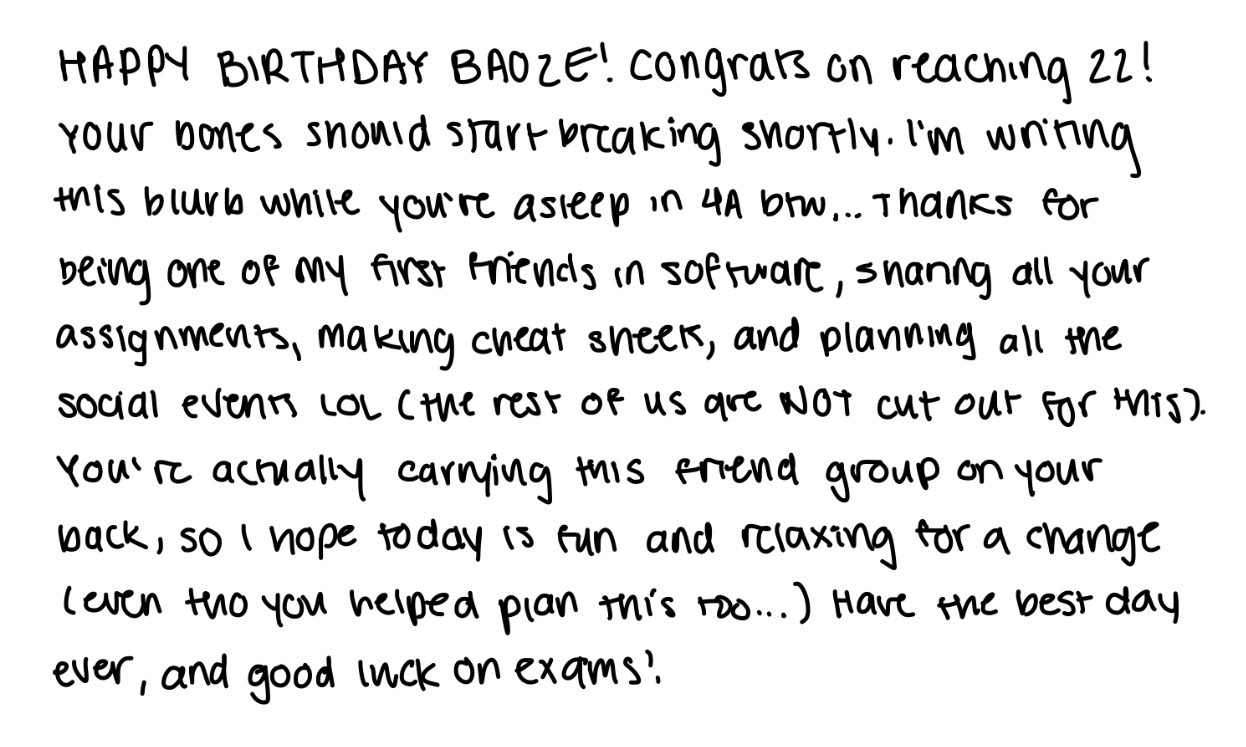 HAPPY BIRTHDAY BAOZE! Congrats on reaching 22!
Your bones should start breaking shortly. I'm writing
this blurb while you're asleep in 4A btw... Thanks for
being one of my first friends in software, sharing all your
assignments, making cheat sheets, and planning all the
social events LOL (the rest of us are NOT cut out for this).
You're actually carrying this friend group on your
back, so I hope today is fun and relaxing for a change
(even tho you helped plan this too...) Have the best day
ever, and good luck on exams!